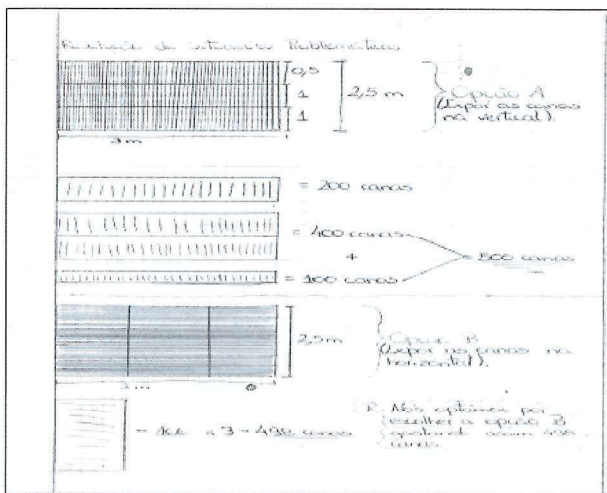 Resolução da situação Problemática
0,5
1
1
2,5 m
3 m
Opção A
(Dispor as canas
na vertical).
= 200 canas
= 400 canas
+
= 100 canas
= 500 canas
2,5m
3 m
Opção B
(Dispor as canas na
horizontal).
= 166 x 3 = 498 canas
R. Nós optamos por
escolher a opção B
assim 498
canas.